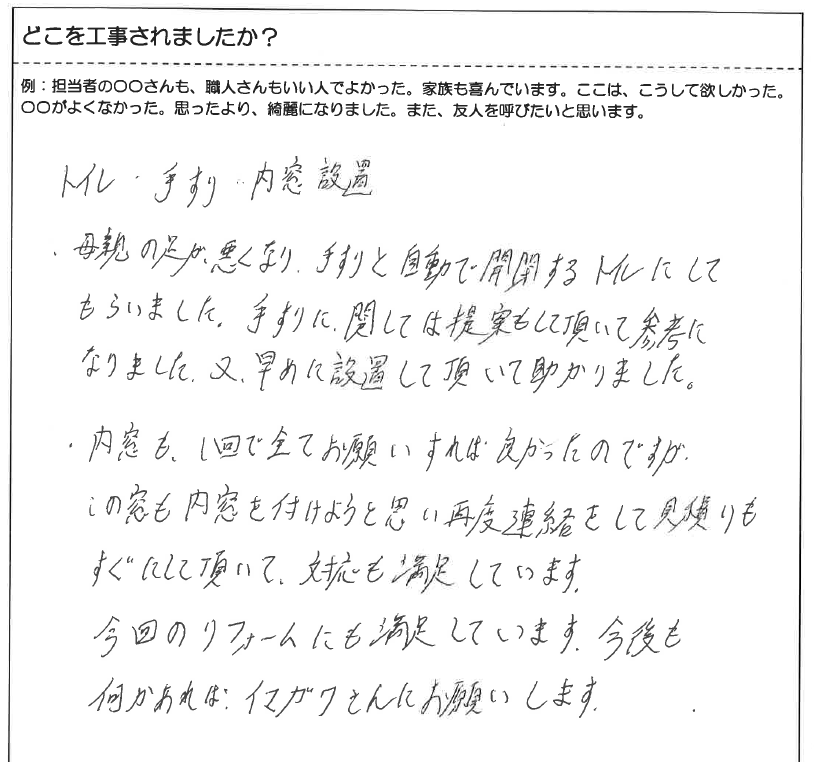 どこを工事されましたか？
例：担当者の〇〇さんも、職人さんもいい人でよかった。家族も喜んでいます。ここは、こうして欲しかった。
〇〇がよくなかった。思ったより、綺麗になりました。また、友人を呼びたいと思います。
トイレ・手すり・内窓設置
・母親の足が、悪くなり、手すりと自動で開閉するトイレにして
もらいました。手すりに、関しては提案もして頂いて参考に
なりました。又、早めに設置して頂いて助かりました。
・内窓も、1回で全てお願いすれば良かったのですが、
この窓も内窓を付けようと思い再度連絡をして見積りも
すぐにして頂いて、対応も満足しています。
今回のリフォームにも満足しています。今後も
何かあれば、イマガワさんにお願いします。